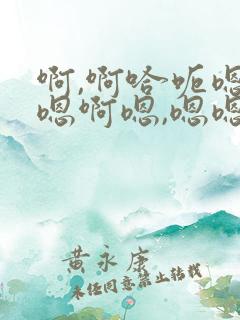 啊,啊哈呃嗯
嗯啊嗯,嗯嗯
黄永康
未经同意禁止转载